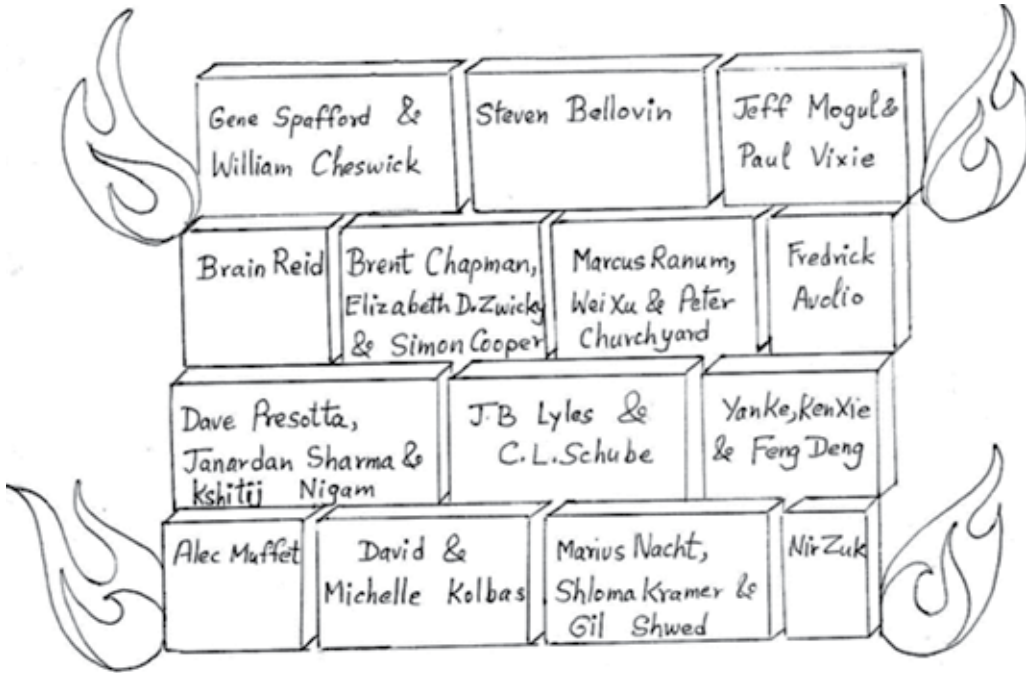 Gene Spafford &
William Cheswick
Steven Bellovin
Jeff Mogul &
Paul Vixie
Brain Reid
Brent Chapman,
Elizabeth D. Zwicky
& Simon Cooper
Marcus Ranum,
Wei Xu & Peter
Churchyard
Fredrick
Avolio
Dave Presotta,
Janardan Sharma &
Kshitij Nigam
J.B Lyles &
C.L. Schube
Yanke, Ken Xie
& Feng Deng
Alec Muffet
David &
Michelle Kolbas
Marius Nacht,
Shloma Kramer &
Gil Shwed
Nir Zuk